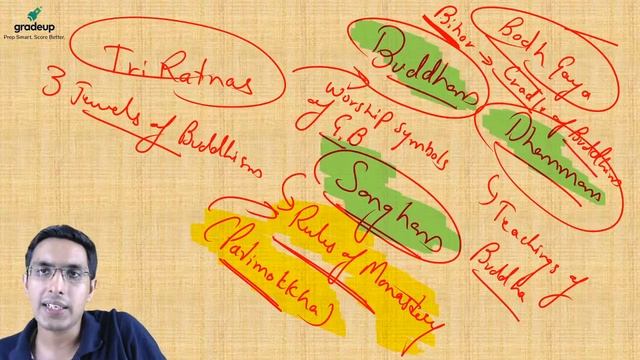 gradeup
Prep Smart. Score Better.
Tri Ratnas
3 Jewels of Buddhism
Buddham
Worship symbols
of G.B
Sangham
Rules of Monastery
(Patimokkha)
Bihar →
Bodh Gaya
Cradle of Buddhism
Dhammam
↳ Teachings of
Buddha